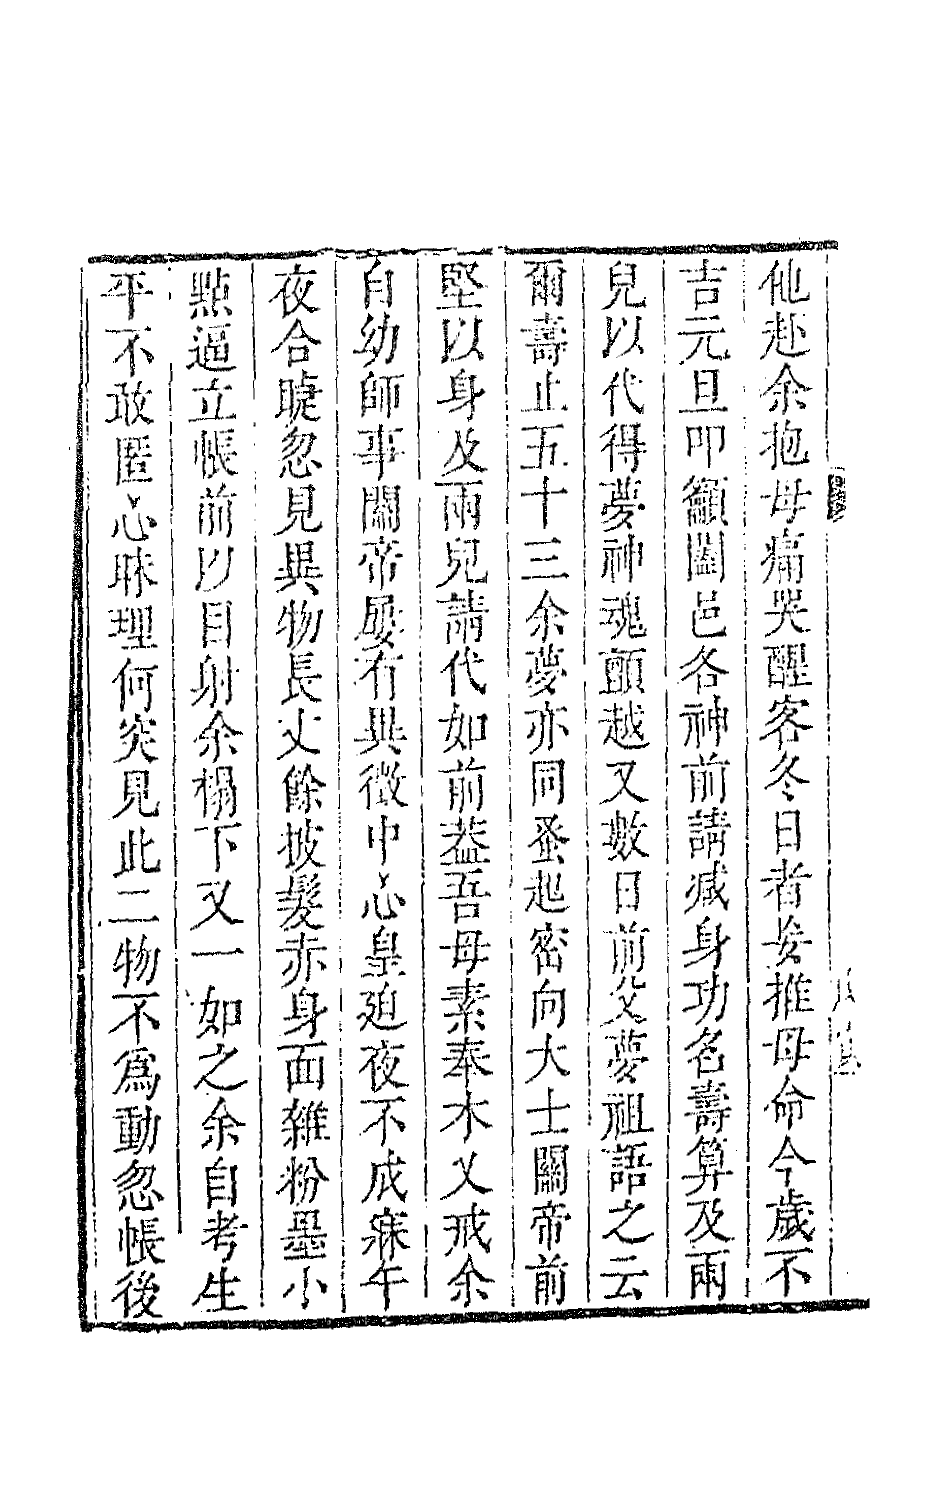 他赴余抱母痛哭醒客冬日者妄推母命今歲不
吉元旦叩籲闔邑各神前請减身功名壽算及兩
兒以代得夢神魂顫越又數日前父夢祖語之云
爾壽止五十三余夢亦同蚤起密向大士關帝前
堅以身及兩兒請代如前葢吾母素奉木乂戒余
自幼師事關帝屢有異徵中心皇迫夜不成寐午
夜合睫忽見異物長丈餘披髮赤身面雜粉墨小
點逼立帳前以目射余榻下又一如之余自考生
平不敢匿心昧理何突見此二物不爲動忽帳後